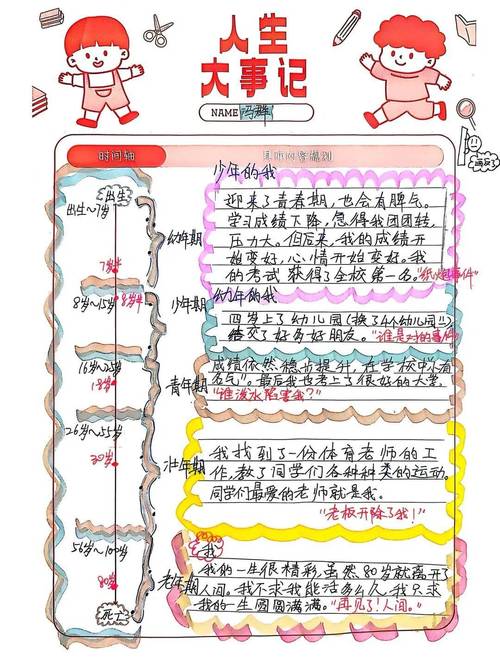 人生
大事记
NAME 冯
时间轴
具体内容规划
出生
出生~7岁
7岁半
幼年期
8岁~15岁
8岁半
少年期
16岁~25岁
18岁
青年期
26岁~55岁
30岁
壮年期
56岁~100岁
80岁
老年期
死亡
少年的我
迎来了青春期，也会有脾气。
学习成绩下降，急得我团团转，
压力大。但后来，我的成绩开
始变好，心情开始变好。我
的考试获得了全校第一名。"纸炮事件"
幼年的我
四岁上了幼儿园(换了4个幼儿园!!)
结交了好多好朋友。"谁是对的事件"
成绩依然稳步提升，在学校中小有
名气"。最后我也考上了很好的大学，
"谁泼水陷害我?"
我找到了一份体育老师的工
作，教了同学们各种种类的运动。
同学们最爱的老师就是我。
"老板开除了我!"
我
我的一生很精彩，虽然80岁就离开了
人间。我不求我能活多么久，我只求
我的一生圆圆满满。"再见了!人间。"